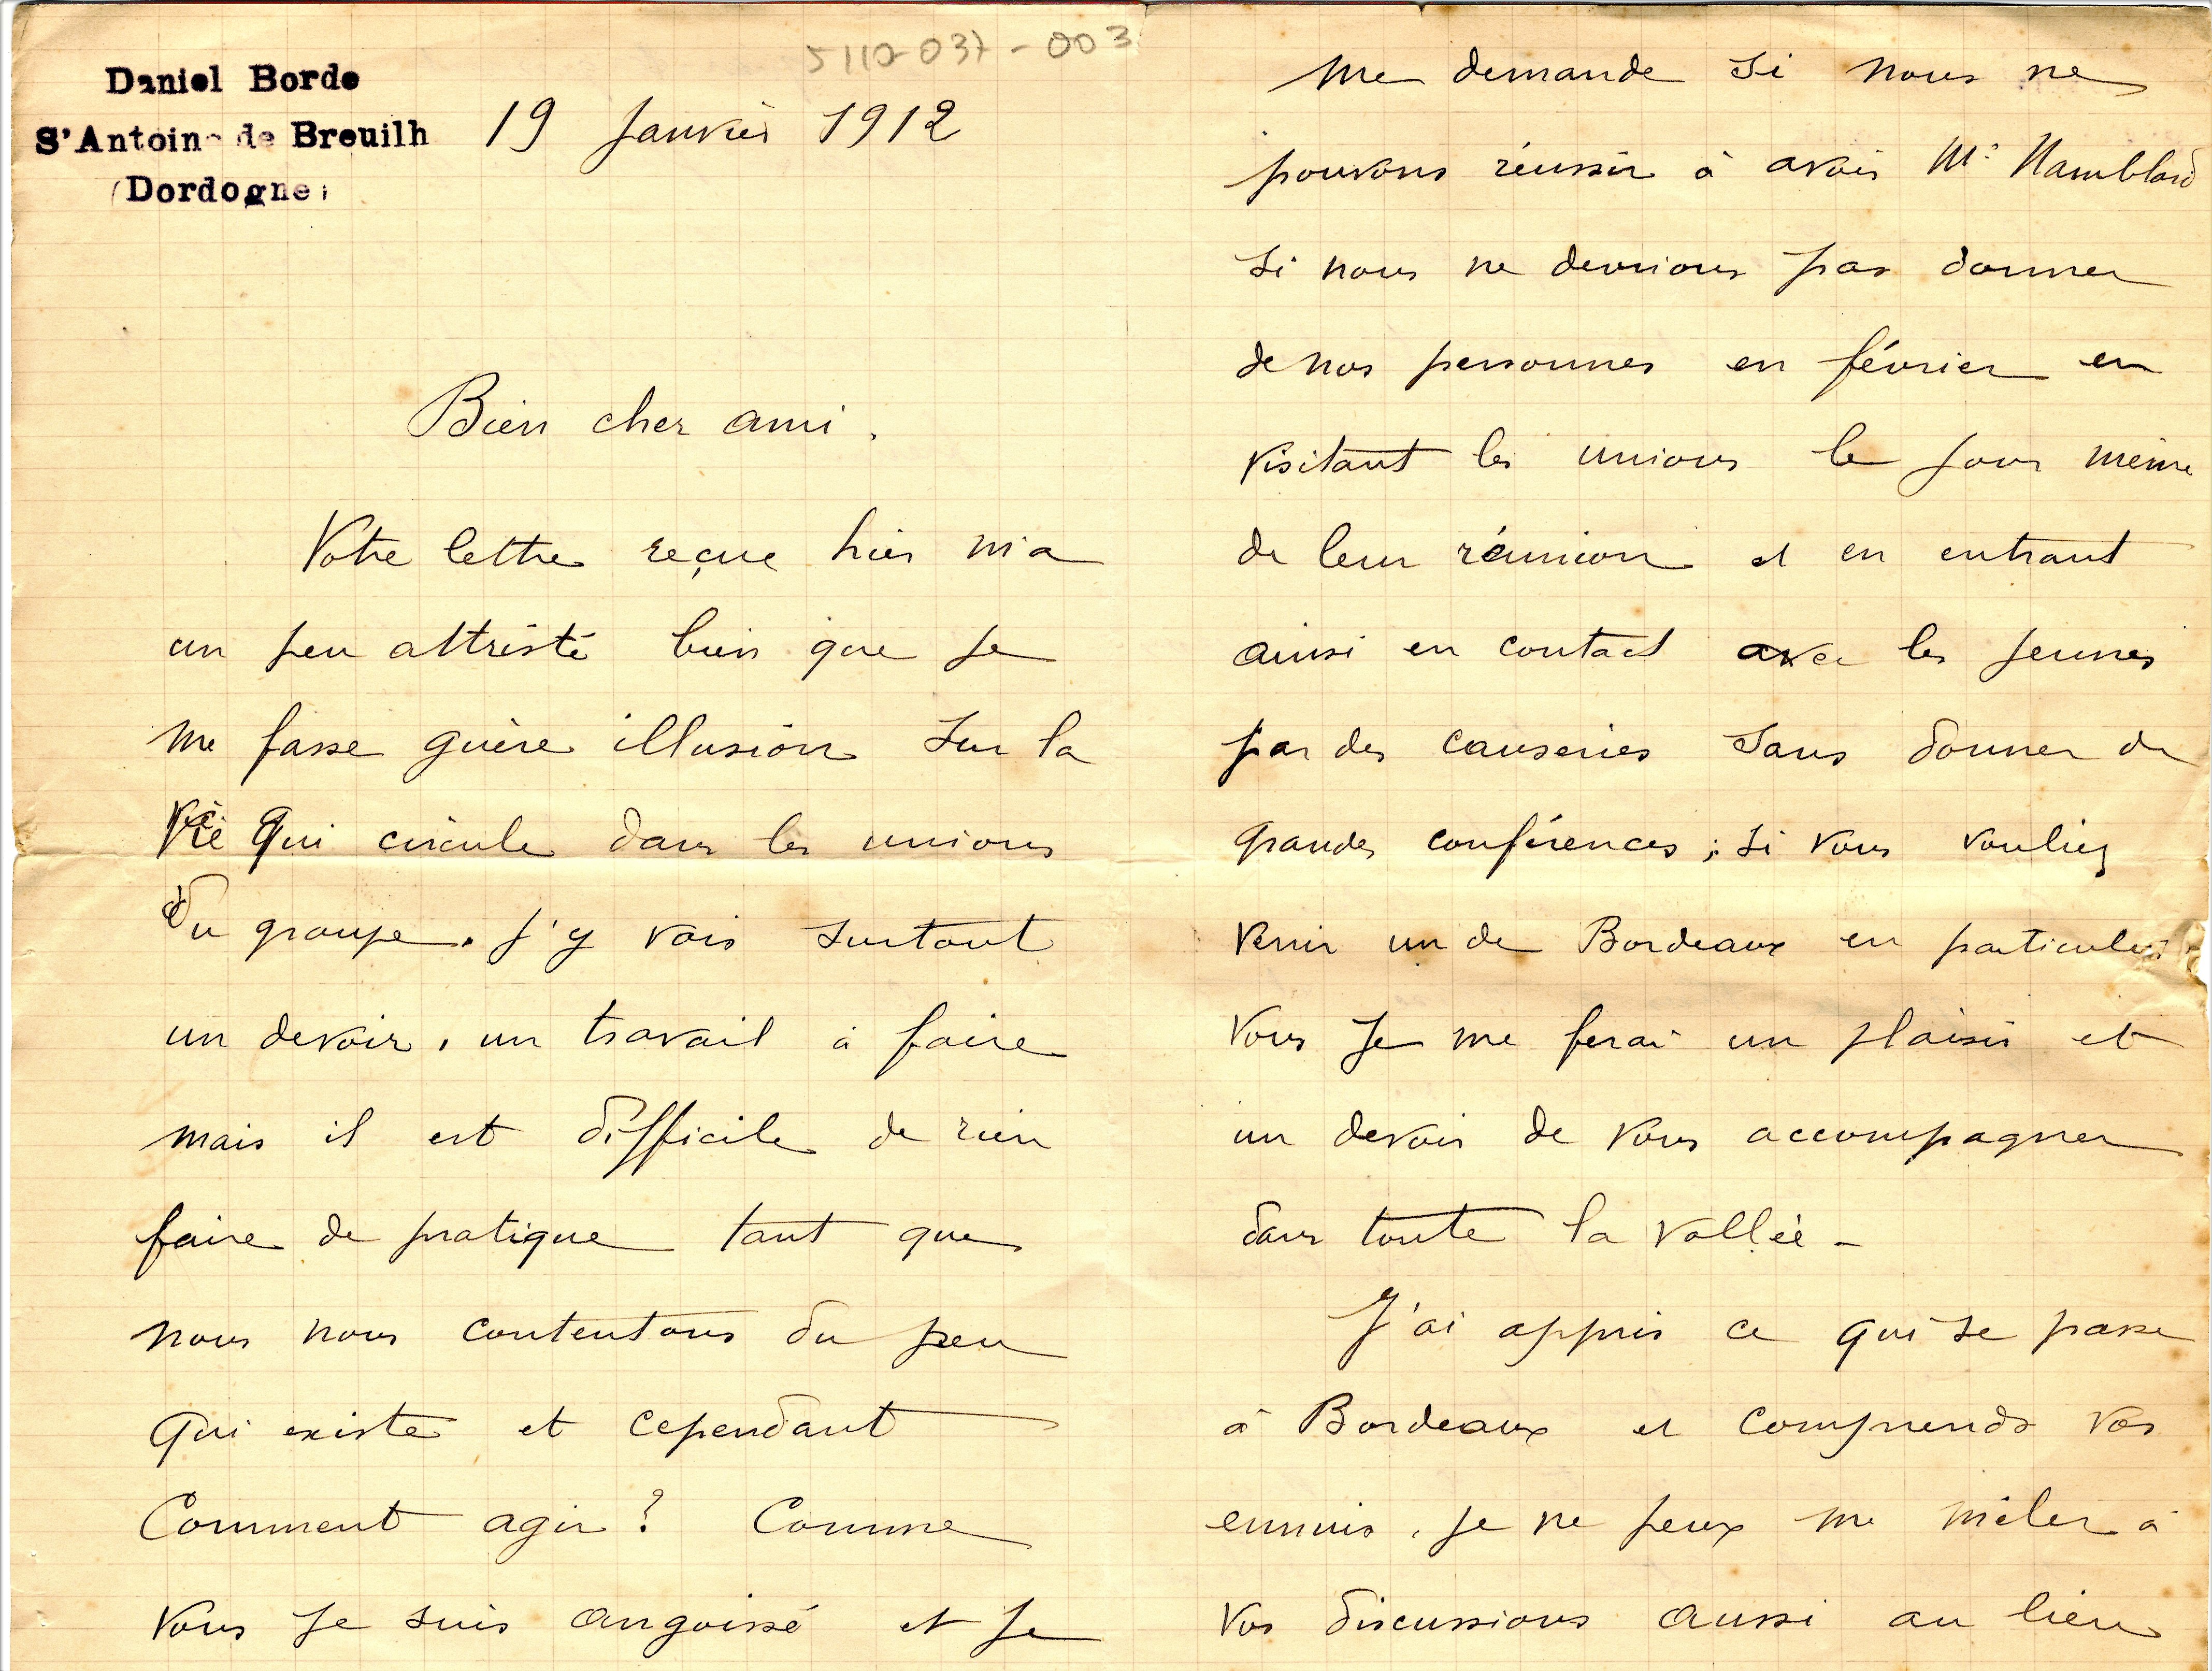 5110-037-003
Daniel Borde
S'Antoine de Breuilh
(Dordogne)
19 Janvier 1912
Bien cher ami.
Votre lettre reçue hier m'a
un peu attristé bien que je
me fasse guère illusion sur la
vie qui circule dans les unions
du groupe. J'y vois surtout
un devoir, un travail à faire
mais il est difficile de rien
faire de pratique tant que
nous nous contentons du peu
qui existe et cependant
Comment agir ? Comme
vous je suis angoissé et je
me demande si nous ne
pouvons réussir à avoir Mr
si nous ne devrions pas donner
de nos personnes en février en
visitant les unions le jour même
de leur réunion et en entrant
ainsi en contact avec les jeunes
par des causeries sans donner de
grandes conférences ; si vous vouliez
venir un de Bordeaux en particulier
vous je me ferai un plaisir et
un devoir de vous accompagner
dans toute la vallée -
J'ai appris ce qui se passe
à Bordeaux et comprends vos
ennuis, je ne peux me mêler à
vos discussions aussi au lieu